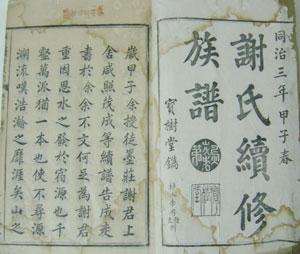 同治三年甲子春
謝氏續修
族譜
寶樹堂鐫
歲甲子余授徒墨莊謝君上
舍咸熙茂成等續譜告成來
書於余余不文何足為謝君
重因思水之發於宿源也千
壑萬派猶一本也使不尋源
溯流嘆浩瀚之靡涯矣山之